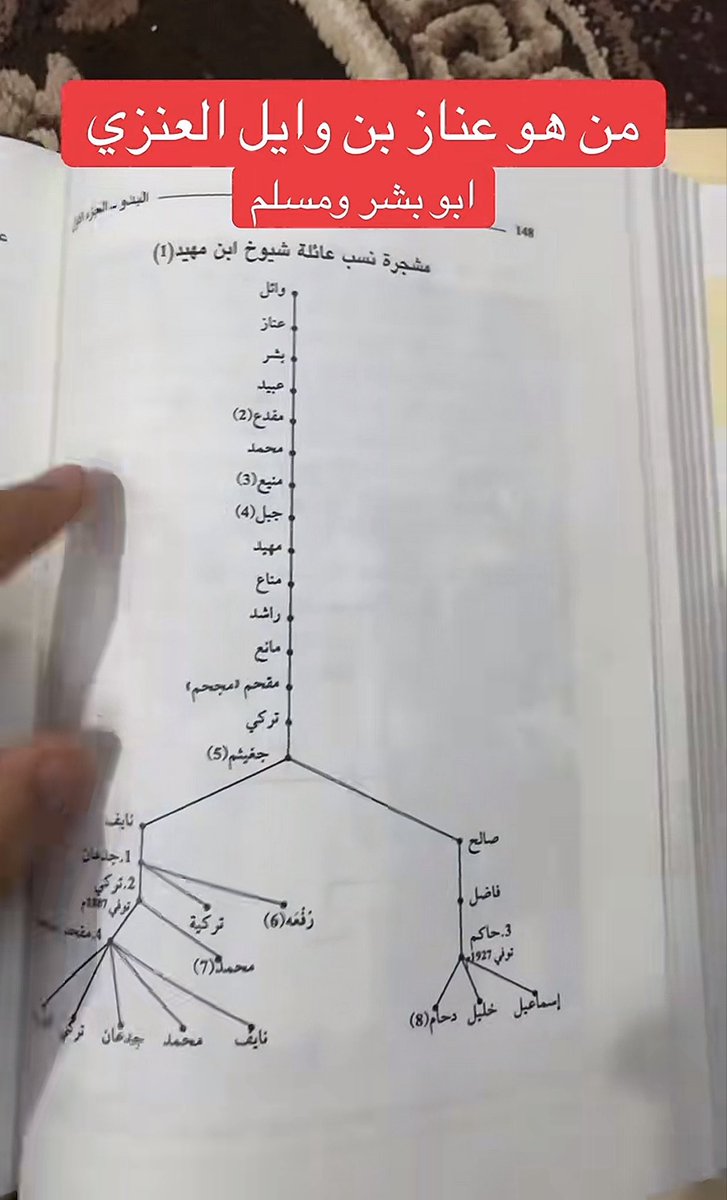 من هو عناز بن وايل العنزي
ابو بشر ومسلم
148
البدو - الجزء الأول
مشجرة نسب عائلة شيوخ ابن مهيد(1)
وائل
عناز
بشر
عبيد
مقدع(2)
محمد
منيع(3)
جبل(4)
مهيد
مناع
راشد
مانع
مقحم «مجحم»
تركي
جغيثم(5)
نايف
صالح
1.جدعان
2.تركي
توفي 1887م
فاضل
رُفْعَه(6)
تركية
3.حاكم
توفي 1927م
4.مقحم
محمد(7)
إسماعيل
خليل
دحام(8)
نايف
محمد
جدعان
تركي